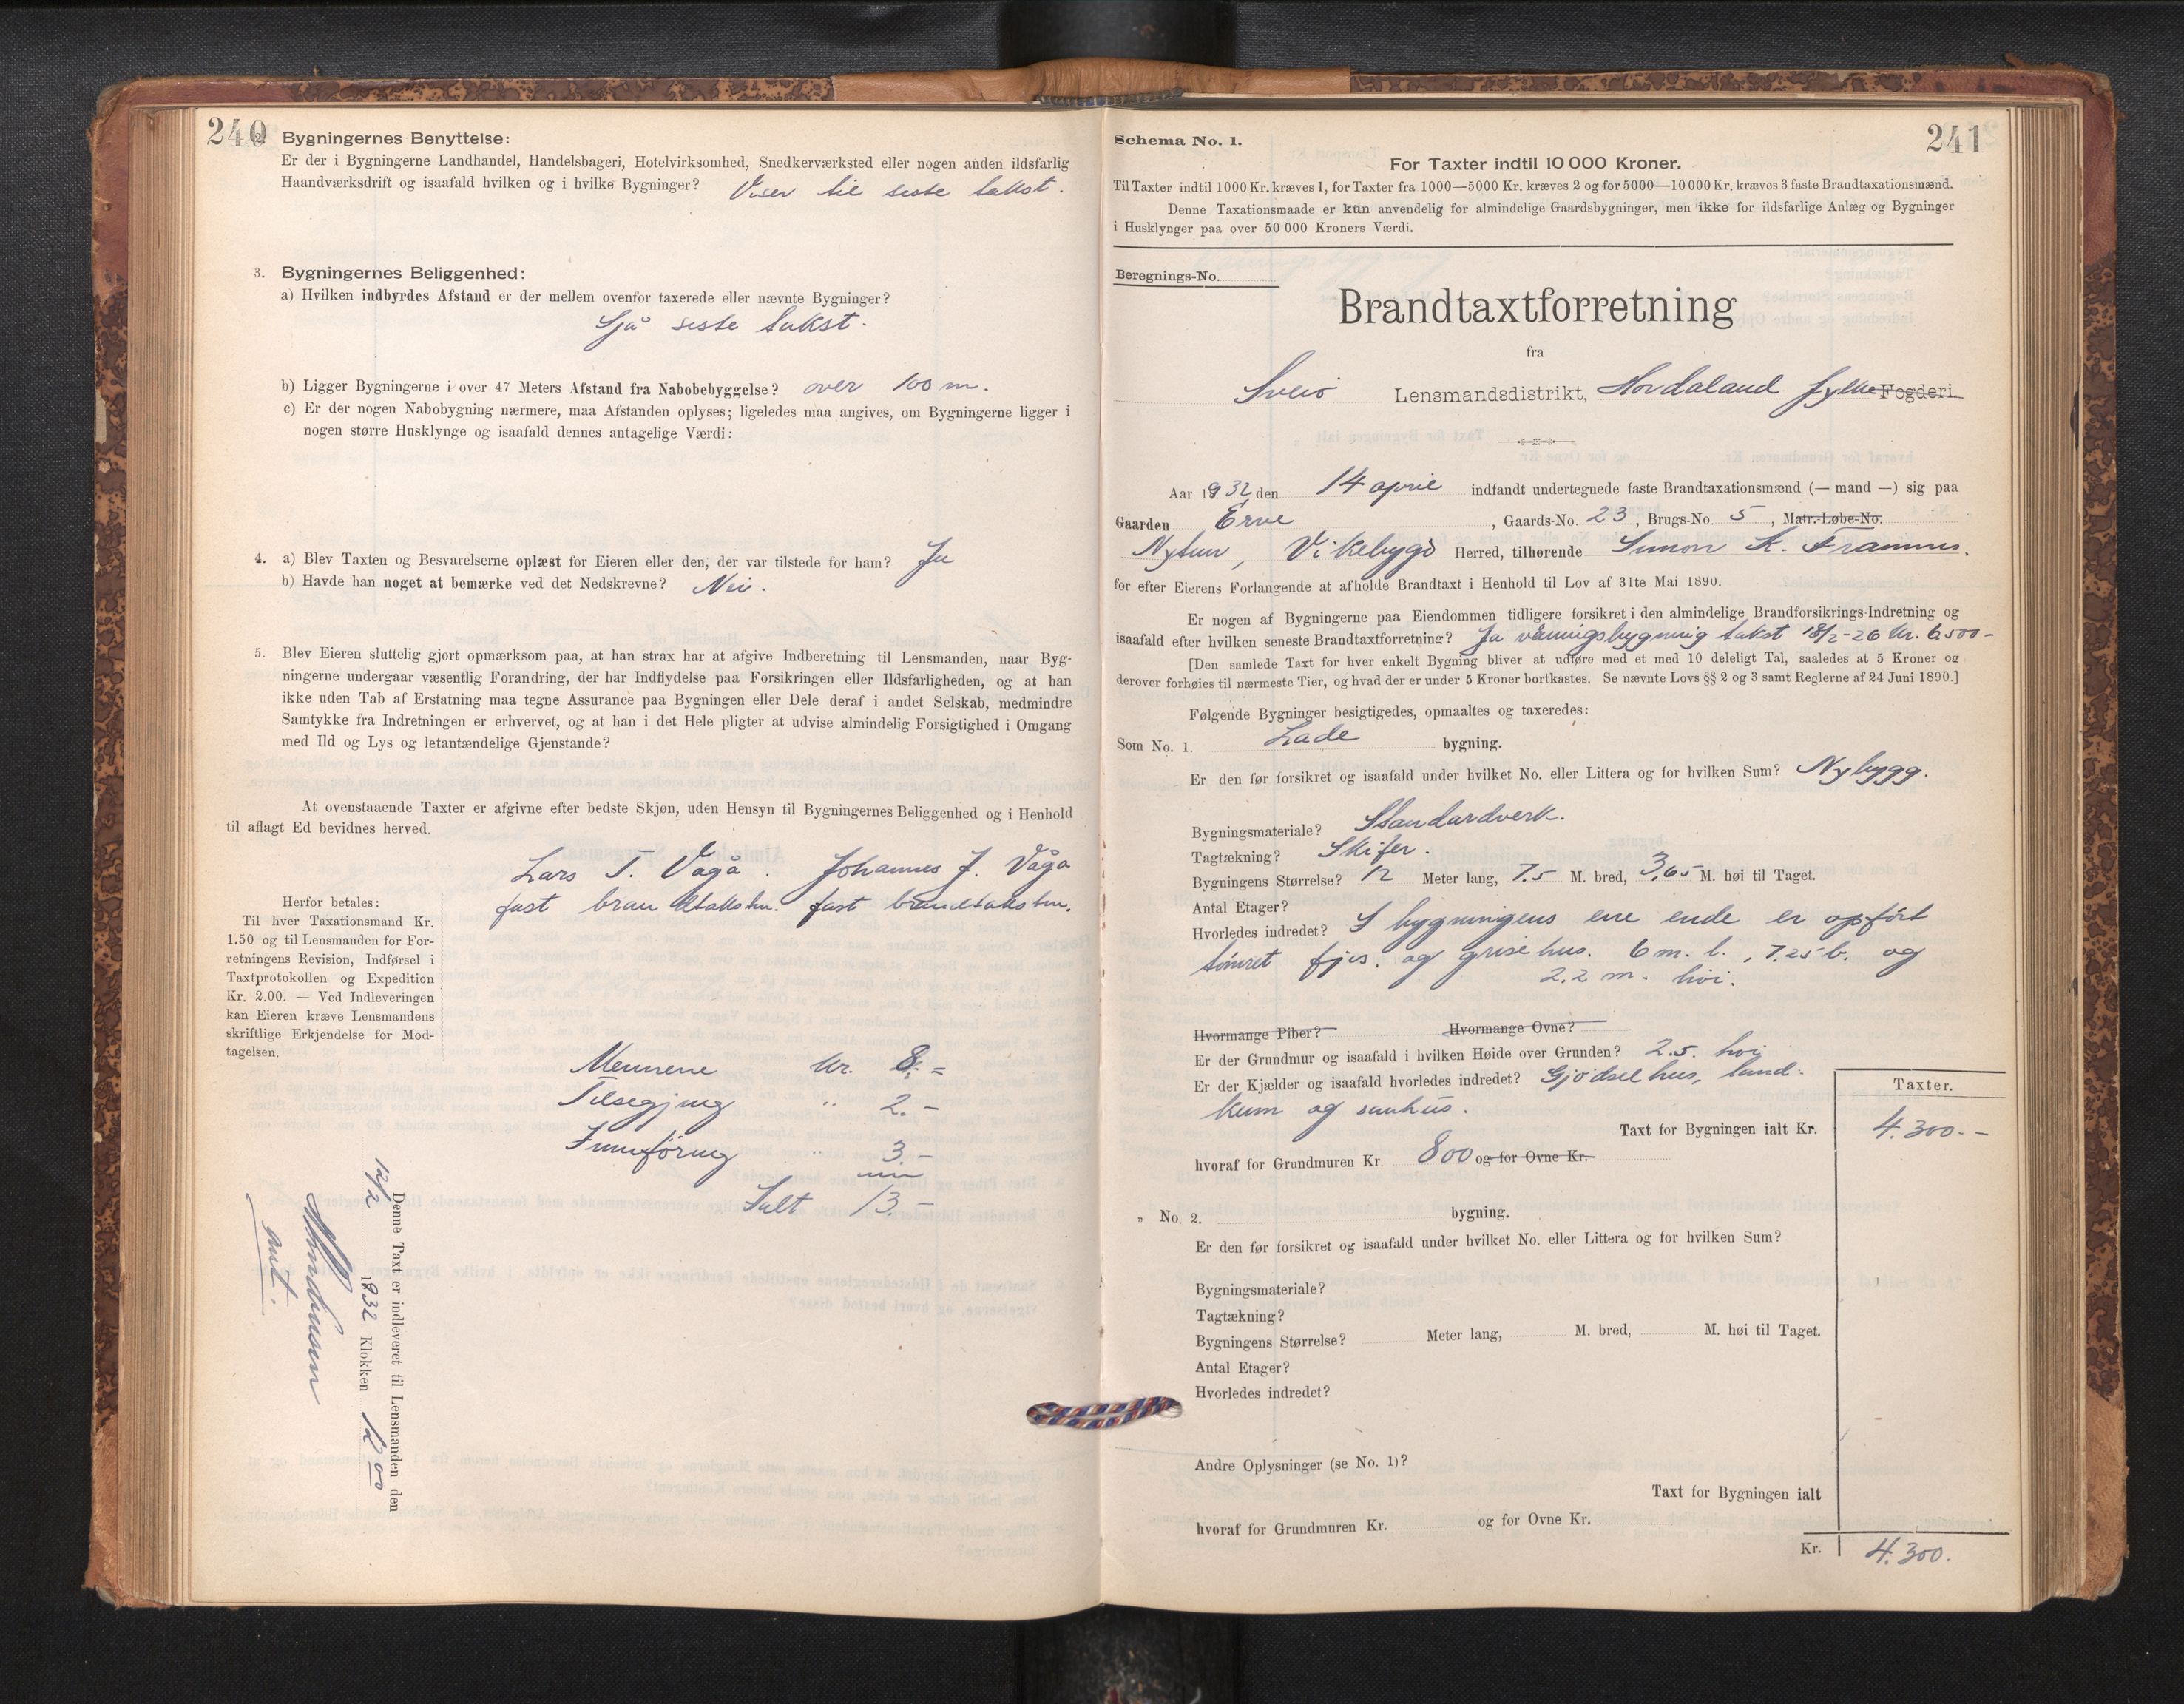 240
2. Bygningernes Benyttelse:
Er der i Bygningerne Landhandel, Handelsbageri, Hotelvirksomhed, Snedkerværksted eller nogen anden ildsfarlig
Haandværksdrift og isaafald hvilken og i hvilke Bygninger? Viser til siste takst.
3. Bygningernes Beliggenhed:
a) Hvilken indbyrdes Afstand er der mellem ovenfor taxerede eller nævnte Bygninger?
Sjå siste takst.
b) Ligger Bygningerne i over 47 Meters Afstand fra Nabobebyggelse? over 100 m.
c) Er der nogen Nabobygning nærmere, maa Afstanden oplyses; ligeledes maa angives, om Bygningerne ligger i
nogen større Husklynge og isaafald dennes antagelige Værdi:
4. a) Blev Taxten og Besvarelserne oplæst for Eieren eller den, der var tilstede for ham? Ja
b) Havde han noget at bemærke ved det Nedskrevne? Nei.
5. Blev Eieren sluttelig gjort opmærksom paa, at han strax har at afgive Indberetning til Lensmanden, naar Byg-
ningerne undergaar væsentlig Forandring, der har Indflydelse paa Forsikringen eller Ildsfarligheden, og at han
ikke uden Tab af Erstatning maa tegne Assurance paa Bygningen eller Dele deraf i andet Selskab, medmindre
Samtykke fra Indretningen er erhvervet, og at han i det Hele pligter at udvise almindelig Forsigtighed i Omgang
med Ild og Lys og letantændelige Gjenstande?
At ovenstaaende Taxter er afgivne efter bedste Skjøn, uden Hensyn til Bygningernes Beliggenhed og i Henhold
til aflagt Ed bevidnes herved.
Lars T. Vågå. Johannes J. Vågå
fast brandtakstm. fast brandtakstm.
Herfor betales:
Til hver Taxationsmand Kr.
1.50 og til Lensmanden for For-
retningens Revision, Indførsel i
Taxtprotokollen og Expedition
Kr. 2.00. — Ved Indleveringen
kan Eieren kræve Lensmandens
skriftlige Erkjendelse for Mod-
tagelsen.
Mennene kr. 8.-
Tilsegjing " 2.-
Innføring " 3.-
Ialt 13.-
Denne Taxt er indleveret til Lensmanden den
12/2 1932 Klokken 12 00
aut.
241
Schema No. 1.
For Taxter indtil 10 000 Kroner.
Til Taxter indtil 1000 Kr. kræves 1, for Taxter fra 1000—5000 Kr. kræves 2 og for 5000—10 000 Kr. kræves 3 faste Brandtaxationsmænd.
Denne Taxationsmaade er kun anvendelig for almindelige Gaardsbygninger, men ikke for ildsfarlige Anlæg og Bygninger
i Husklynger paa over 50 000 Kroners Værdi.
Beregnings-No.
Brandtaxtforretning
fra
Sveio Lensmandsdistrikt, Hordaland fylke Fogderi.
Aar 1932, den 14 april indfandt undertegnede faste Brandtaxationsmænd (— mand —) sig paa
Gaarden Erve, Gaards-No. 23, Brugs-No. 5, Matr.-Løbe-No.
Nytun, Vikebygd Herred, tilhørende Simon K. Framnes.
for efter Eierens Forlangende at afholde Brandtaxt i Henhold til Lov af 31te Mai 1890.
Er nogen af Bygningerne paa Eiendommen tidligere forsikret i den almindelige Brandforsikrings-Indretning og
isaafald efter hvilken seneste Brandtaxtforretning? Ja våningsbygning takst 18/2-26 kr. 6500-
[Den samlede Taxt for hver enkelt Bygning bliver at udføre med et med 10 deleligt Tal, saaledes at 5 Kroner og
derover forhøies til nærmeste Tier, og hvad der er under 5 Kroner bortkastes. Se nævnte Lovs §§ 2 og 3 samt Reglerne af 24 Juni 1890.]
Følgende Bygninger besigtigedes, opmaaltes og taxeredes:
Som No. 1. Lade bygning.
Er den før forsikret og isaafald under hvilket No. eller Littera og for hvilken Sum? Nybygg.
Bygningsmateriale? Standardverk.
Tagtækning? Skifer.
Bygningens Størrelse? 12 Meter lang, 7.5 M. bred, 3.65 M. høi til Taget.
Antal Etager?
Hvorledes indredet? I bygningens ene ende er opført
tømret fjos. og grisehus. 6 m. l., 7.25 b. og
2.2 m. høi.
Hvormange Piber? Hvormange Ovne?
Er der Grundmur og isaafald i hvilken Høide over Grunden? 2.5. høi
Er der Kjælder og isaafald hvorledes indredet? Gjødselhus, land-
kum og sauhus.
Taxter.
Taxt for Bygningen ialt Kr. 4.300.-
hvoraf for Grundmuren Kr. 800 og for Ovne Kr.
„ No. 2. bygning.
Er den før forsikret og isaafald under hvilket No. eller Littera og for hvilken Sum?
Bygningsmateriale?
Tagtækning?
Bygningens Størrelse? Meter lang, M. bred, M. høi til Taget.
Antal Etager?
Hvorledes indredet?
Andre Oplysninger (se No. 1)?
Taxt for Bygningen ialt
hvoraf for Grundmuren Kr. og for Ovne Kr.
Kr. 4.300.